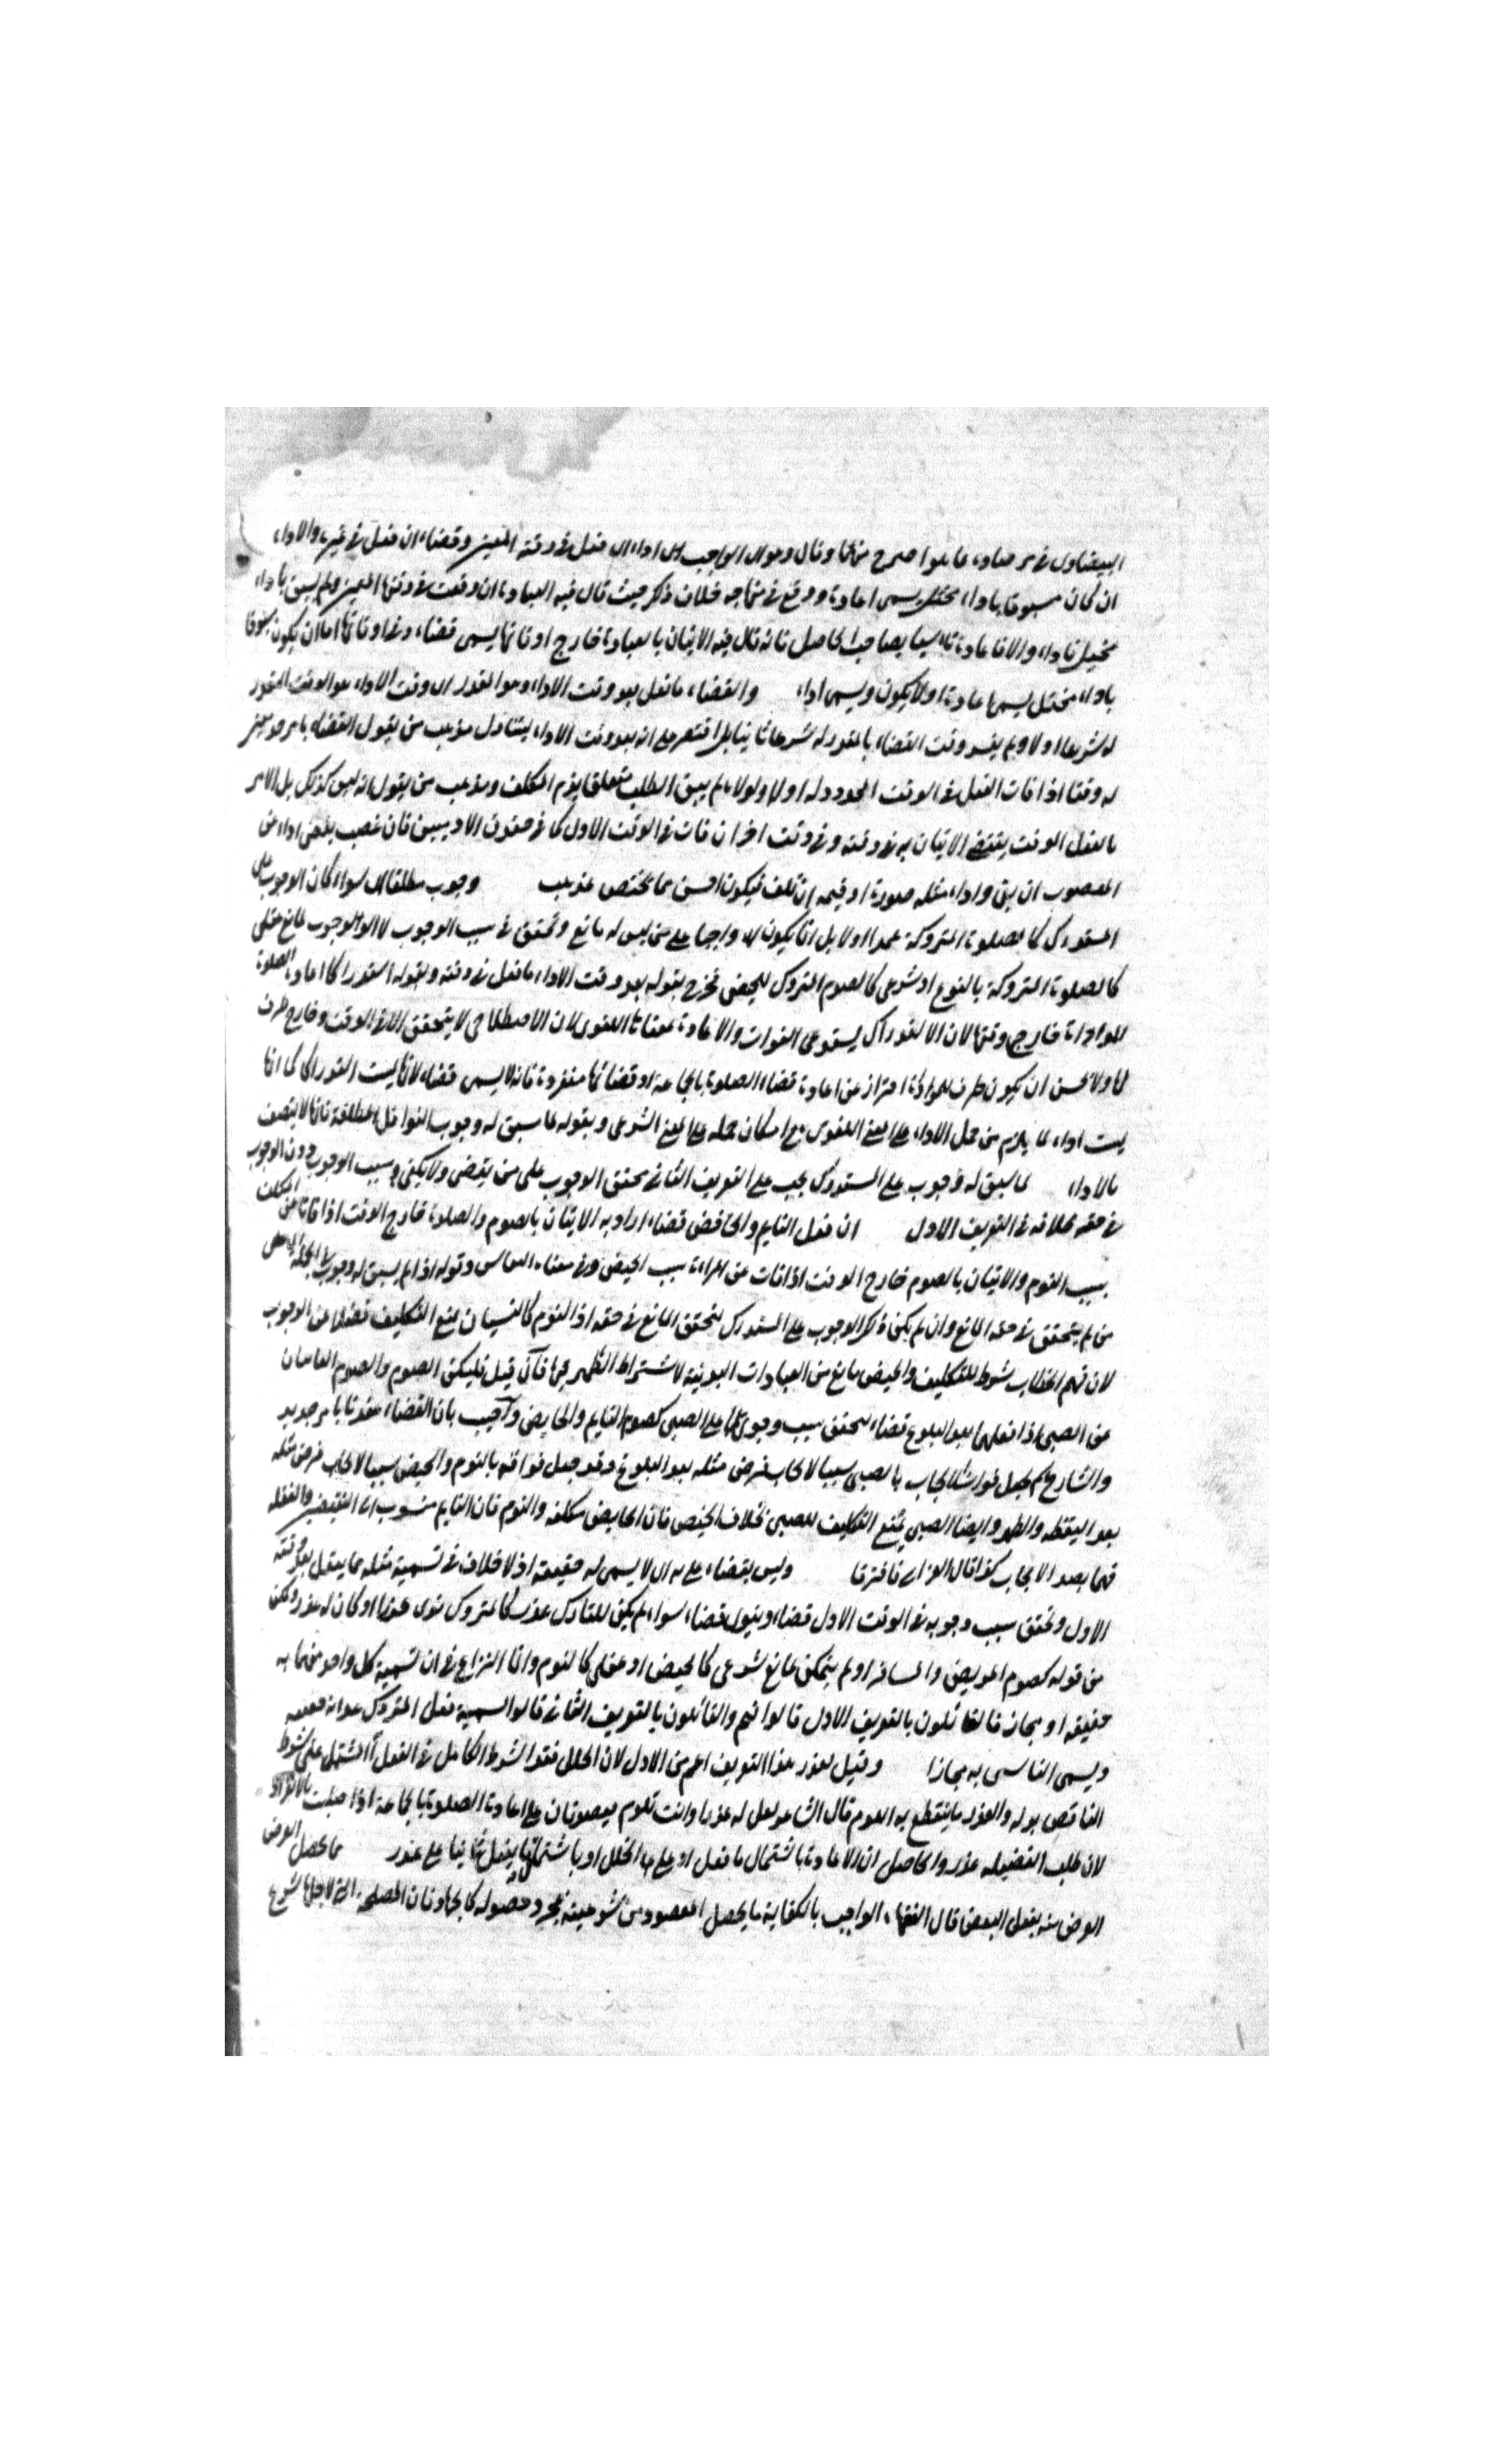 البيضاوى فى مرصاده ما هو اصرح منهما وقال وهو اى الواجب اى اداء ان فعل فى وقته المعين وقضاء ان فعل فى غيره والاداء
ان كان مسبوقا باداء مختل يسمى اعادة ووقع فى منهاجه خلاف ذكر حيث قال فيه العبادة ان وقعت فى وقتها المعين ولم يسبق باداء
مختل فاداء والا فاعادة تاسيا بصاحب الحاصل فانه قال فيه الاتيان بالعبادة خارج اوقاتها يسمى قضاء وفى اوقاتها اما ان يكون مسبوقا
باداء مختل يسمى اعادة او لا يكون ويسمى اداء والقضاء ما فعل بعد وقت الاداء وهو المقدر اى وقت الاداء هو الوقت المقدر
له شرعا اولا ولم يفسر وقت القضاء بالمقدر له شرعا ثانيا بل اقتصر على انه بعد وقت الاداء يتناول مذهب من يقول القضاء بامر جديد معين
له وقتا اذا فات الفعل فى الوقت المحدود له اولا ولولاه لم يبق الطلب متعلقا بذم المكلف ومذهب من يقول انه ليس كذلك بل الامر
بالفعل الوقت يقتضى الاتيان به فى وقته وفى وقت اخر ان فات فى الوقت الاول كما فى حقوق الادميين فان غصب يقتضى اداء عين
المغصوب ان بقى واداء مثله صورة او قيمه ان تلف فيكون احسن مما يختص بمذهب وجوب مطلقا اى سواء كان الوجوب على
المستدرك كالصلوة المتروكة عمدا او لا بل انما يكون واجبا على من ليس له مانع وتحقق فى سبب الوجوب لا الوجوب لمانع عقلى
كالصلوة المتروكة بالنوم او شرعى كالصوم المتروك للحيض فخرج بقوله بعد وقت الاداء ما فعل فى وقته وبقوله استدراكا اعادة الصلوة
المؤداة خارج وقتها لان الاستدراك يستدعى الفوات والاعادة بمعناها اللغوى لان الاصطلاحى لا يتحقق الا فى الوقت وخارج ظرف
لها ولا يحسن ان يكون ظرف للمؤداة احتراز عن اعادة قضاء الصلوة بالجماعة او قضائها منفردة فانه لا يسمى قضاء لانها ليست استدراكا كما انها
ليست اداء لما يلزم من حمل الاداء على المعنى اللغوى مع امكان حمله على المعنى الشرعى وبقوله لما سبق له وجوب النوافل المطلقة فانها لا يتصف
بالاداء لما سبق له وجوب على المستدرك يجب على التعريف الثانى تحقق الوجوب على من يقضى ولا يكفى سبب الوجوب دون الوجوب
فى حقه بخلافه فى التعريف الاول ان فعل النايم والحائض قضاء اراد به الاتيان بالصوم والصلوة خارج الوقت اذا فاتا عن المكلف
بسبب النوم والاتيان بالصوم خارج الوقت اذا فات عن المراة بسبب الحيض وفى معناه النفاس وقوله اذا لم يسبق له وجوب فى الجملة اى على
من لم يتحقق فى حقه المانع وان لم يكن ذكر الوجوب على المستدرك لتحقق المانع فى حقه اذ النوم كالنسيان يمنع التكليف فضلا عن الوجوب
لان فهم الخطاب شرط للتكليف والحيض مانع من العبادات البدنية لاشتراط الطهر فيها فان قيل فليكن الصوم والصلوة الفائتان
عن الصبى اذا فعلهما بعد البلوغ قضاء لتحقق سبب وجوبهما على الصبى كصوم النايم والحايض واجيب بان القضاء عندنا بامر جديد
والشارع لم يجعل فوات الايجاب بالصبى سببا لايجاب فرض مثله بعد البلوغ وقد جعل فواته بالنوم والحيض سببا لايجاب فرض مثله
بعد اليقظه والطهر وايضا الصبى يمنع التكليف للصبى بخلاف الحيض فان الحايض مكلفه والنوم فان النايم منسوب الى التقصير والغفله
فهما بصدد الايجاب كذا قال الغزالى فافترقا وليس بقضاء على به اى لا يسمى له حقيقة اذ لا خلاف فى تسمية مثله مما يفعل بعد وقته
الاول وتحقق سبب وجوبه فى الوقت الاول قضاء وبنيول قضاء سواء لم يكن للتارك عذر كالمتروك بدون عذر او كان له عذر وتمكن
من قوله كصوم المريض والمسافر او لم يتمكن لمانع شرعى كالحيض او عقلى كالنوم وانما النزاع فى ان تسمية كل واحد منهما به
حقيقه او مجاز فالقائلون بالتعريف الاول قالوا نعم والقائلون بالتعريف الثانى قالوا تسمية فعل المتروك عمدا به حقيقه
ويسمى الناسى به مجازا وقيل لعذر هذا التعريف اعم من الاول لان الخلل فقد الشرط الكامل فى الفعل المشتمل على شرط
الناقص بدله والعذر ما ينقطع به اللوم قال الشاعر لعل له عذرا وانت تلوم فيصدقان على اعادة الصلوة بالجماعة اذا صليت بالانفراد
لان طلب الفضيله عذر والحاصل ان الاعادة باشتمال ما فعل اولا على الخلل او باشتمال ما يفعل ثانيا على عذر ما يحصل الغرض
الغرض منه بفعل البعض قال الفقهاء الواجب بالكفاية ما يحصل المقصود من شرعيته بمجرد حصوله كالجهاد فان المصلحة التى لاجلها شرع